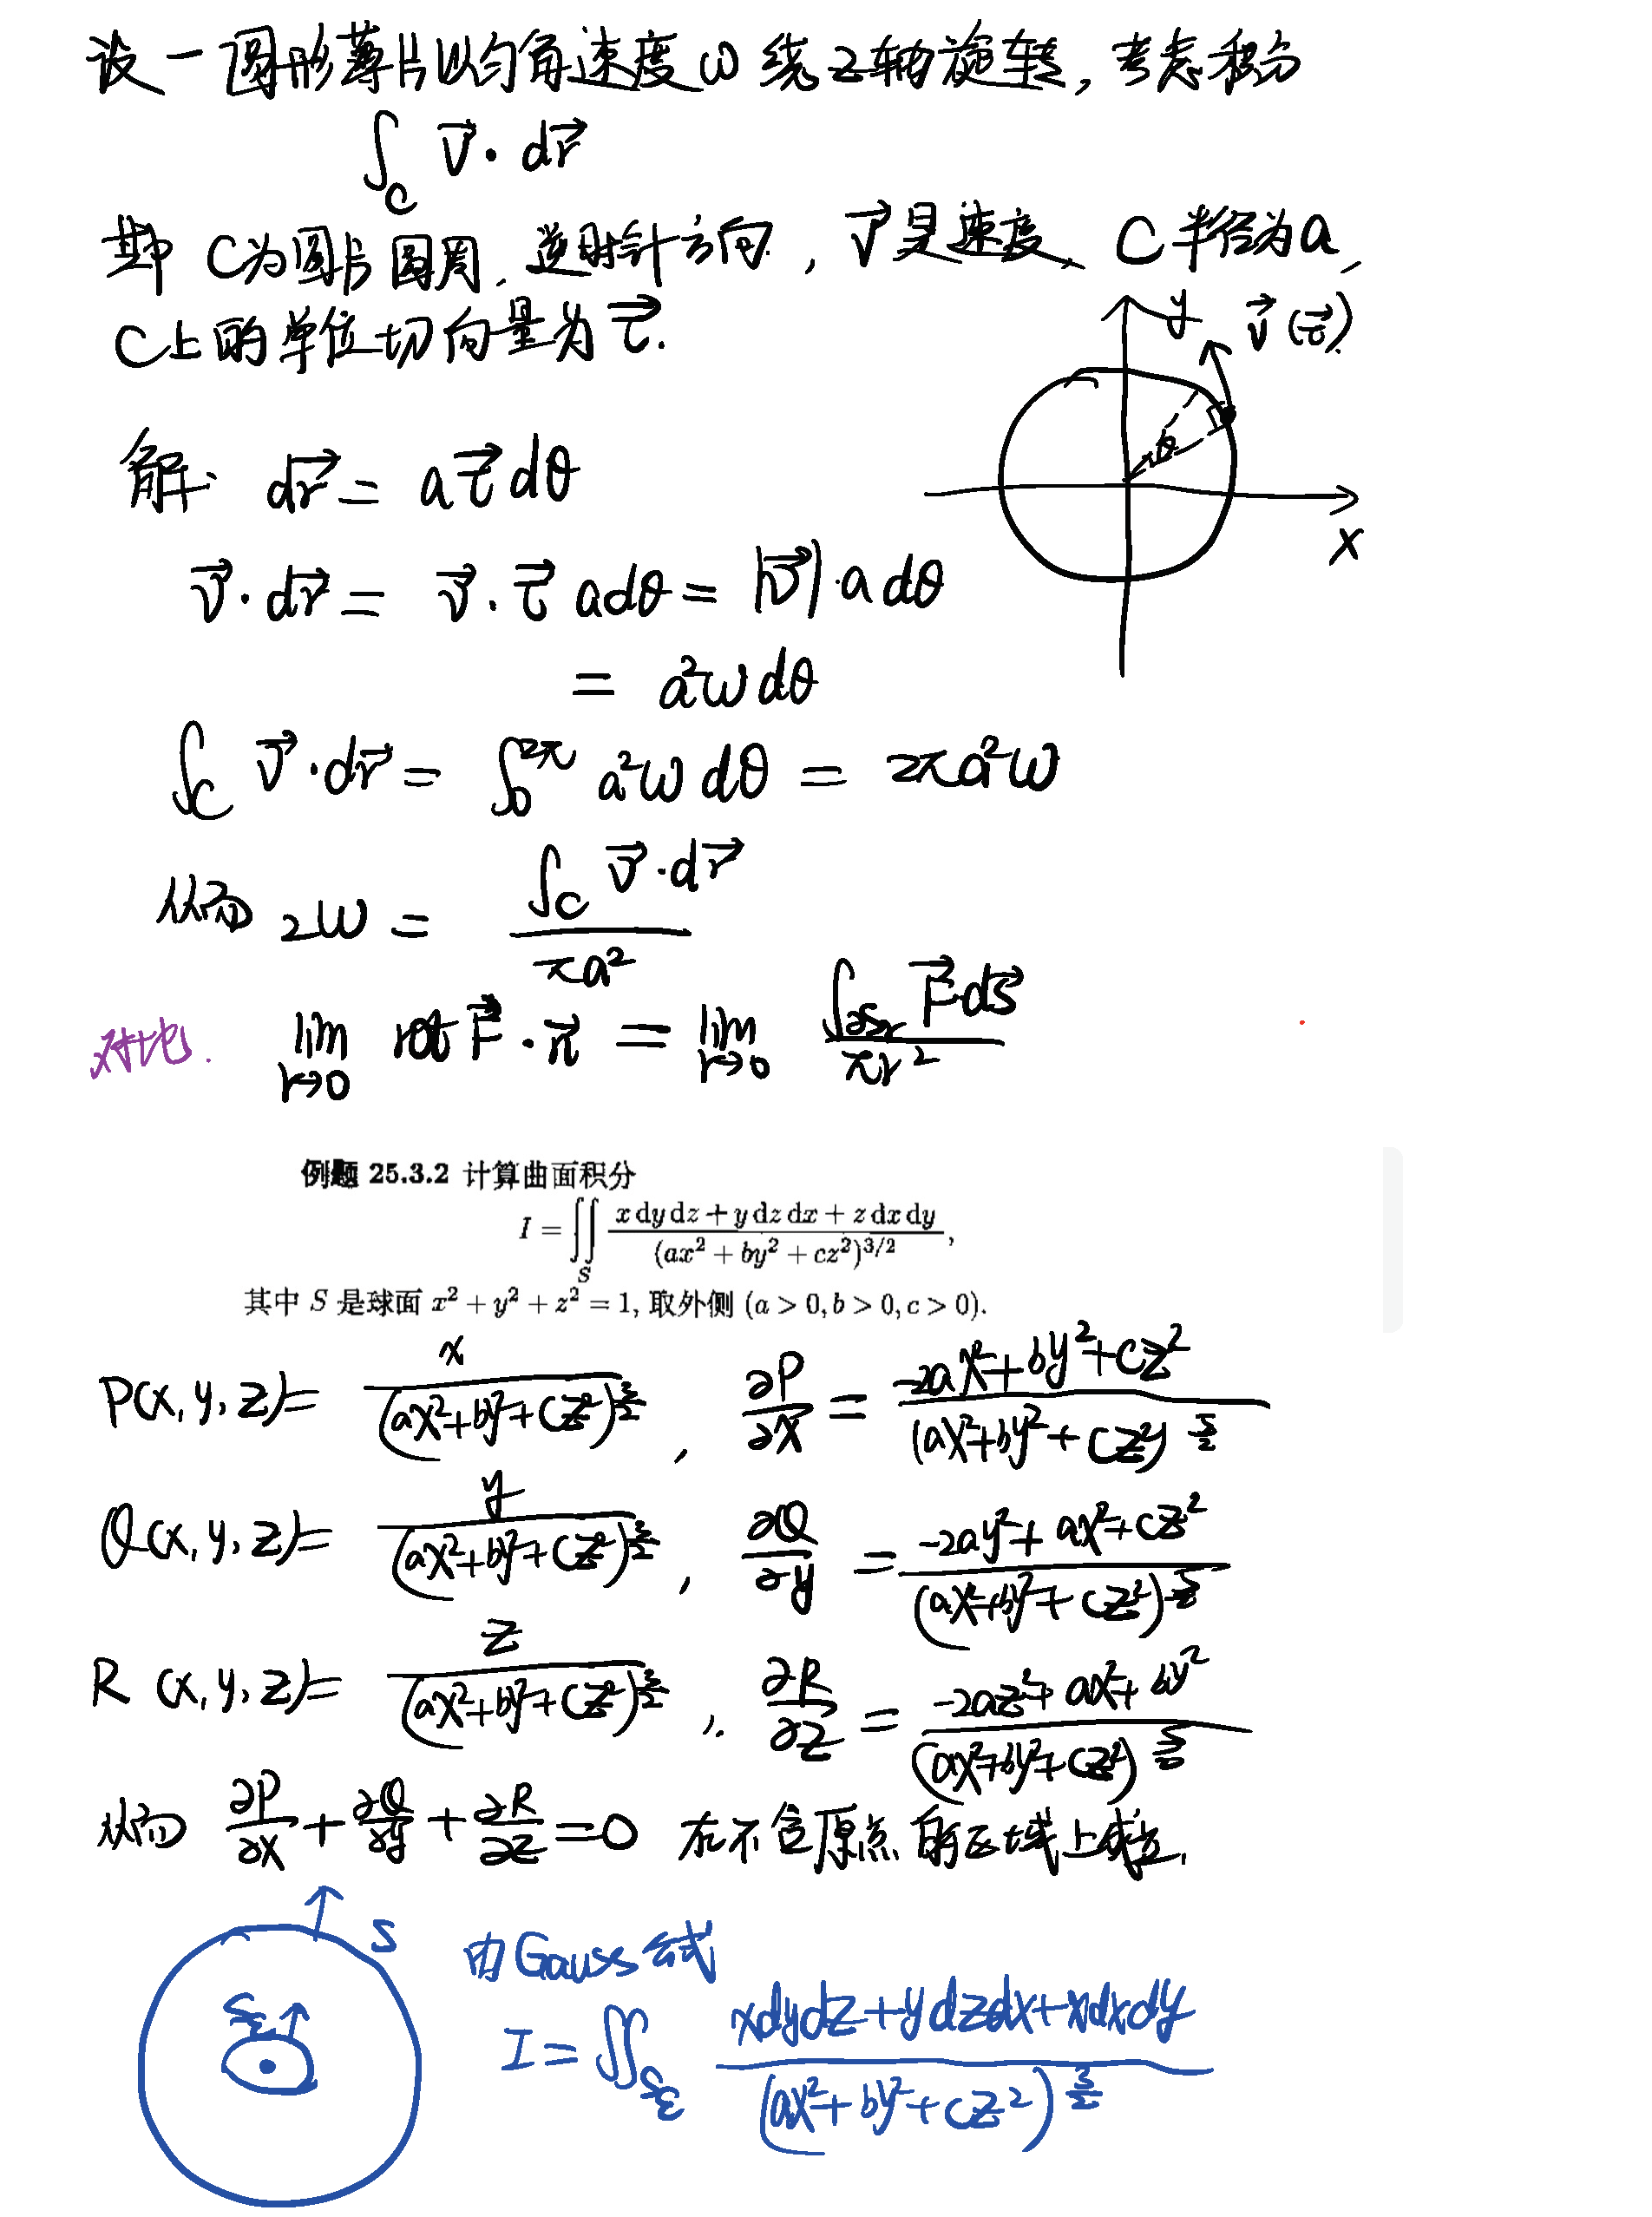 设一圆形薄片以匀角速度ω绕z轴旋转,考虑积分
∫_C v⃗·dr⃗
其中 C为圆片圆周,逆时针方向,v⃗是速度、C半径为a,
C上的单位切向量为τ⃗.
y v⃗(τ⃗)
θ
x
解: dr⃗ = aτ⃗dθ
v⃗·dr⃗ = v⃗·τ⃗ adθ = |v⃗|·a dθ
= a²ω dθ
∫_C v⃗·dr⃗ = ∫_0^{2π} a²ω dθ = 2πa²ω
从而 2ω = ∫_C v⃗·dr⃗ / πa²
对比. lim_{r→0} rot F⃗·n⃗ = lim_{r→0} ∫_{∂S_r} F⃗·ds⃗ / πr²
例题 25.3.2 计算曲面积分
I = ∬_S (x dy dz + y dz dx + z dx dy) / (ax² + by² + cz²)^{3/2},
其中 S 是球面 x² + y² + z² = 1, 取外侧 (a > 0, b > 0, c > 0).
P(x,y,z) = x / (ax²+by²+cz²)^{3/2}, ∂P/∂x = (-2ax²+by²+cz²) / (ax²+by²+cz²)^{5/2}
Q(x,y,z) = y / (ax²+by²+cz²)^{3/2}, ∂Q/∂y = (-2ay²+ax²+cz²) / (ax²+by²+cz²)^{5/2}
R(x,y,z) = z / (ax²+by²+cz²)^{3/2}, ∂R/∂z = (-2az²+ax²+by²) / (ax²+by²+cz²)^{5/2}
从而 ∂P/∂x + ∂Q/∂y + ∂R/∂z = 0 在不含原点的区域上成立.
S
S_ε
由Gauss公式
I = ∬_{S_ε} (xdydz+ydzdx+xdxdy) / (ax²+by²+cz²)^{3/2}